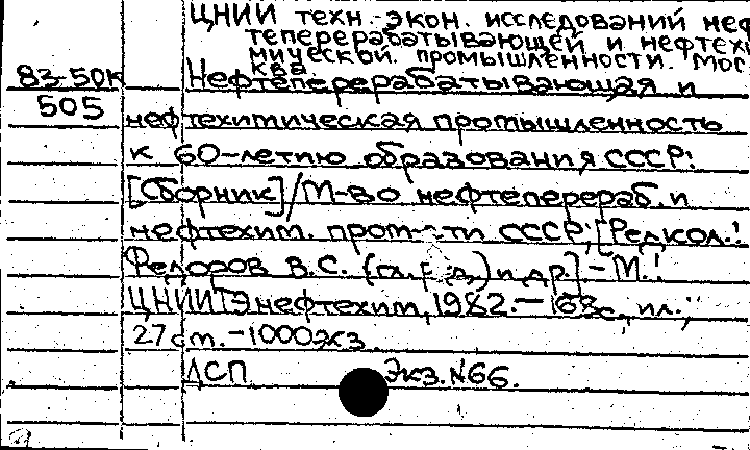 ЦНИИ техн.-экон. исследований неф
теперерабатывающей и нефтехи
мической промышленности. Мос
ква
83-50к Нефтеперерабатывающая и
505 нефтехимическая промышленность
к 60-летию образования СССР:
[Сборник]/М-во нефтеперераб. и
нефтехим. пром-сти СССР; [Редкол.:
Федоров В.С. (гл. ред.) и др.] – М.:
ЦНИИТЭнефтехим, 1982. – 168с., ил.;
27 см. – 1000 экз
ДСП Экз. №66.